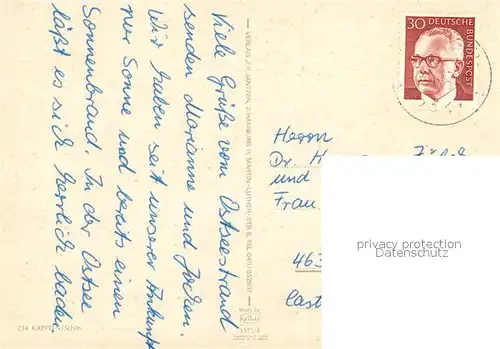 Viele Grüße vom Ostseestrand
senden Marianne und Jochen.
Wir haben seit unserer Ankunft
nur Sonne und bereits einen
Sonnenbrand. In der Ostsee
läßt es sich herrlich baden.
234 KAPPELN/Schlei
VERLAG J. P. JANTZEN, 2 HAMBURG 11, MARTIN-LUTHER-STR. 8, TEL.
Made by
Krüger
30 DEUTSCHE
BUNDESPOST
Herrn
Dr. H
und
Frau
463
Cast
privacy protection
Datenschutz